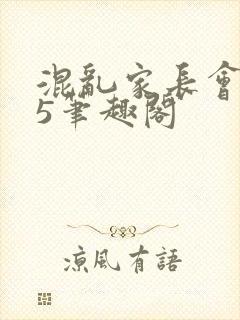 混亂家長會
5筆趣閣
涼風有語